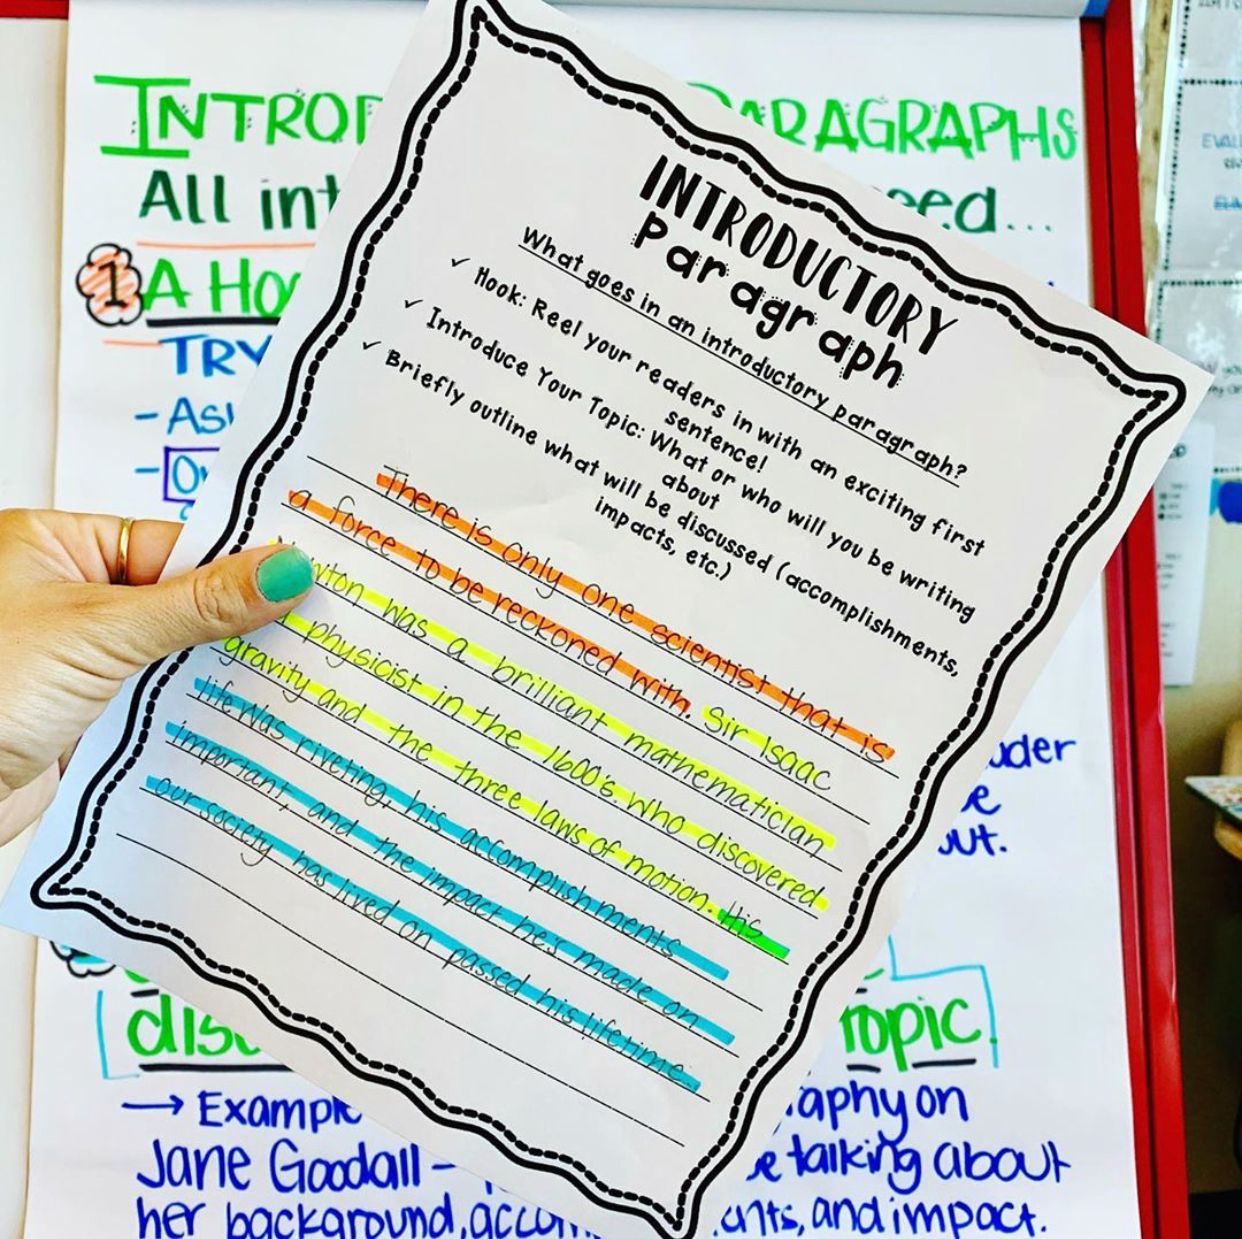 INTRO PARAGRAPHS
All need...
1 A
TRY
INTRODUCTORY
Paragraph
What goes in an introductory paragraph?
✓ Hook: Reel your readers in with an exciting first
sentence!
✓ Introduce Your Topic: What or who will you be writing
about
✓ Briefly outline what will be discussed (accomplishments,
impacts, etc.)
There is only one scientist that is
a force to be reckoned with. Sir Isaac
Newton was a brilliant mathematician
physicist in the 1600's. Who discovered
gravity and the three laws of motion. His
life was riveting, his accomplishments
important, and the impact he's made on
our society has lived on passed his lifetime.
out.
topic.
→ Example on
Jane Goodall – talking about
her background, and impact.